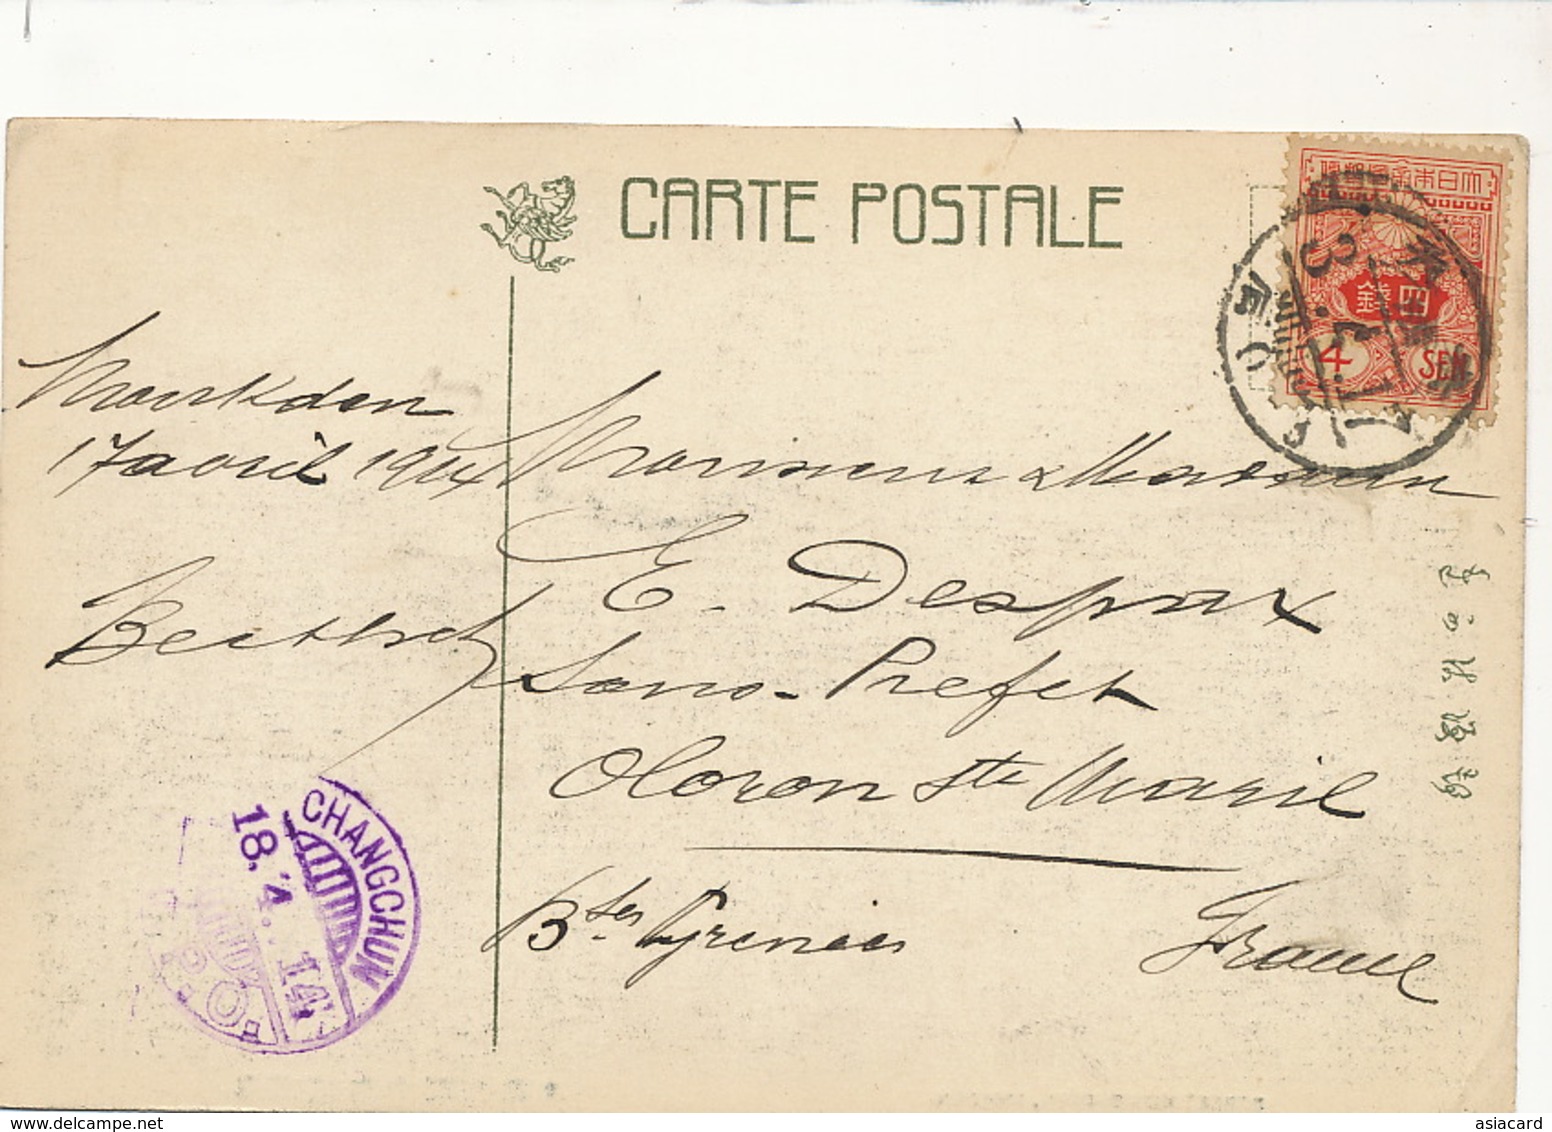 CARTE POSTALE
大日本帝國郵便
四錢
4 SEN
Moukden
17 avril 1914
Monsieur & Madame
E. Despaux
Sous-Prefet
Oloron Ste Marie
Bses Pyrenées
France
CHANGCHUN
18.4.14
I.J.P.O.
asiacard
delcampe.net